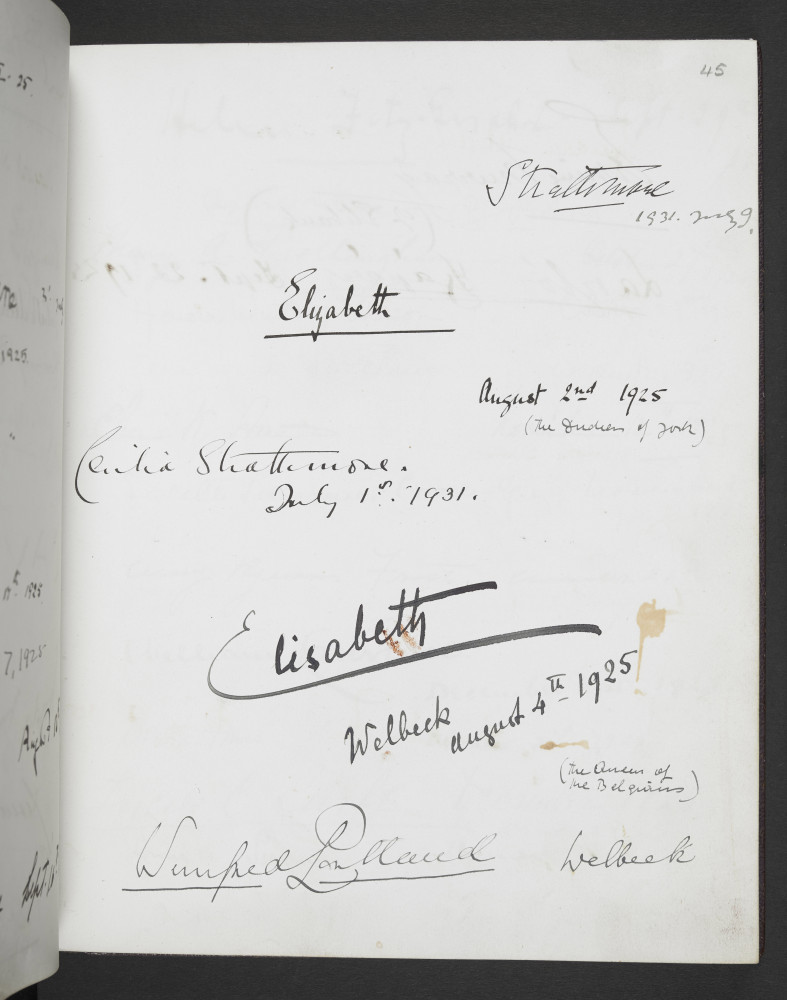 45
Strathmore
1931. July 9.
Elizabeth
August 2nd 1925
(the Duchess of York)
Cecilia Strathmore.
July 1st. 1931.
Elisabeth
Welbeck August 4th 1925
(the Queen of
the Belgians)
Winifred Portland Welbeck
25.
1925
"
1925
7, 1925
Sept.